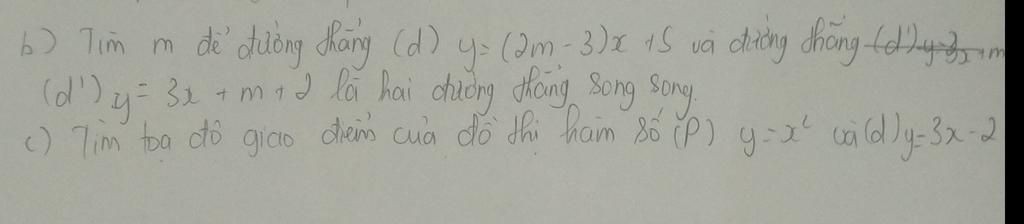 b) Tìm m để đường thẳng (d) y=(2m-3)x+5 và đường thẳng (d') y=3x+m
(d') y=3x+m+2 là hai đường thẳng song song.
c) Tìm tọa độ giao điểm của đồ thị hàm số (P) y=x² và (d) y=3x-2